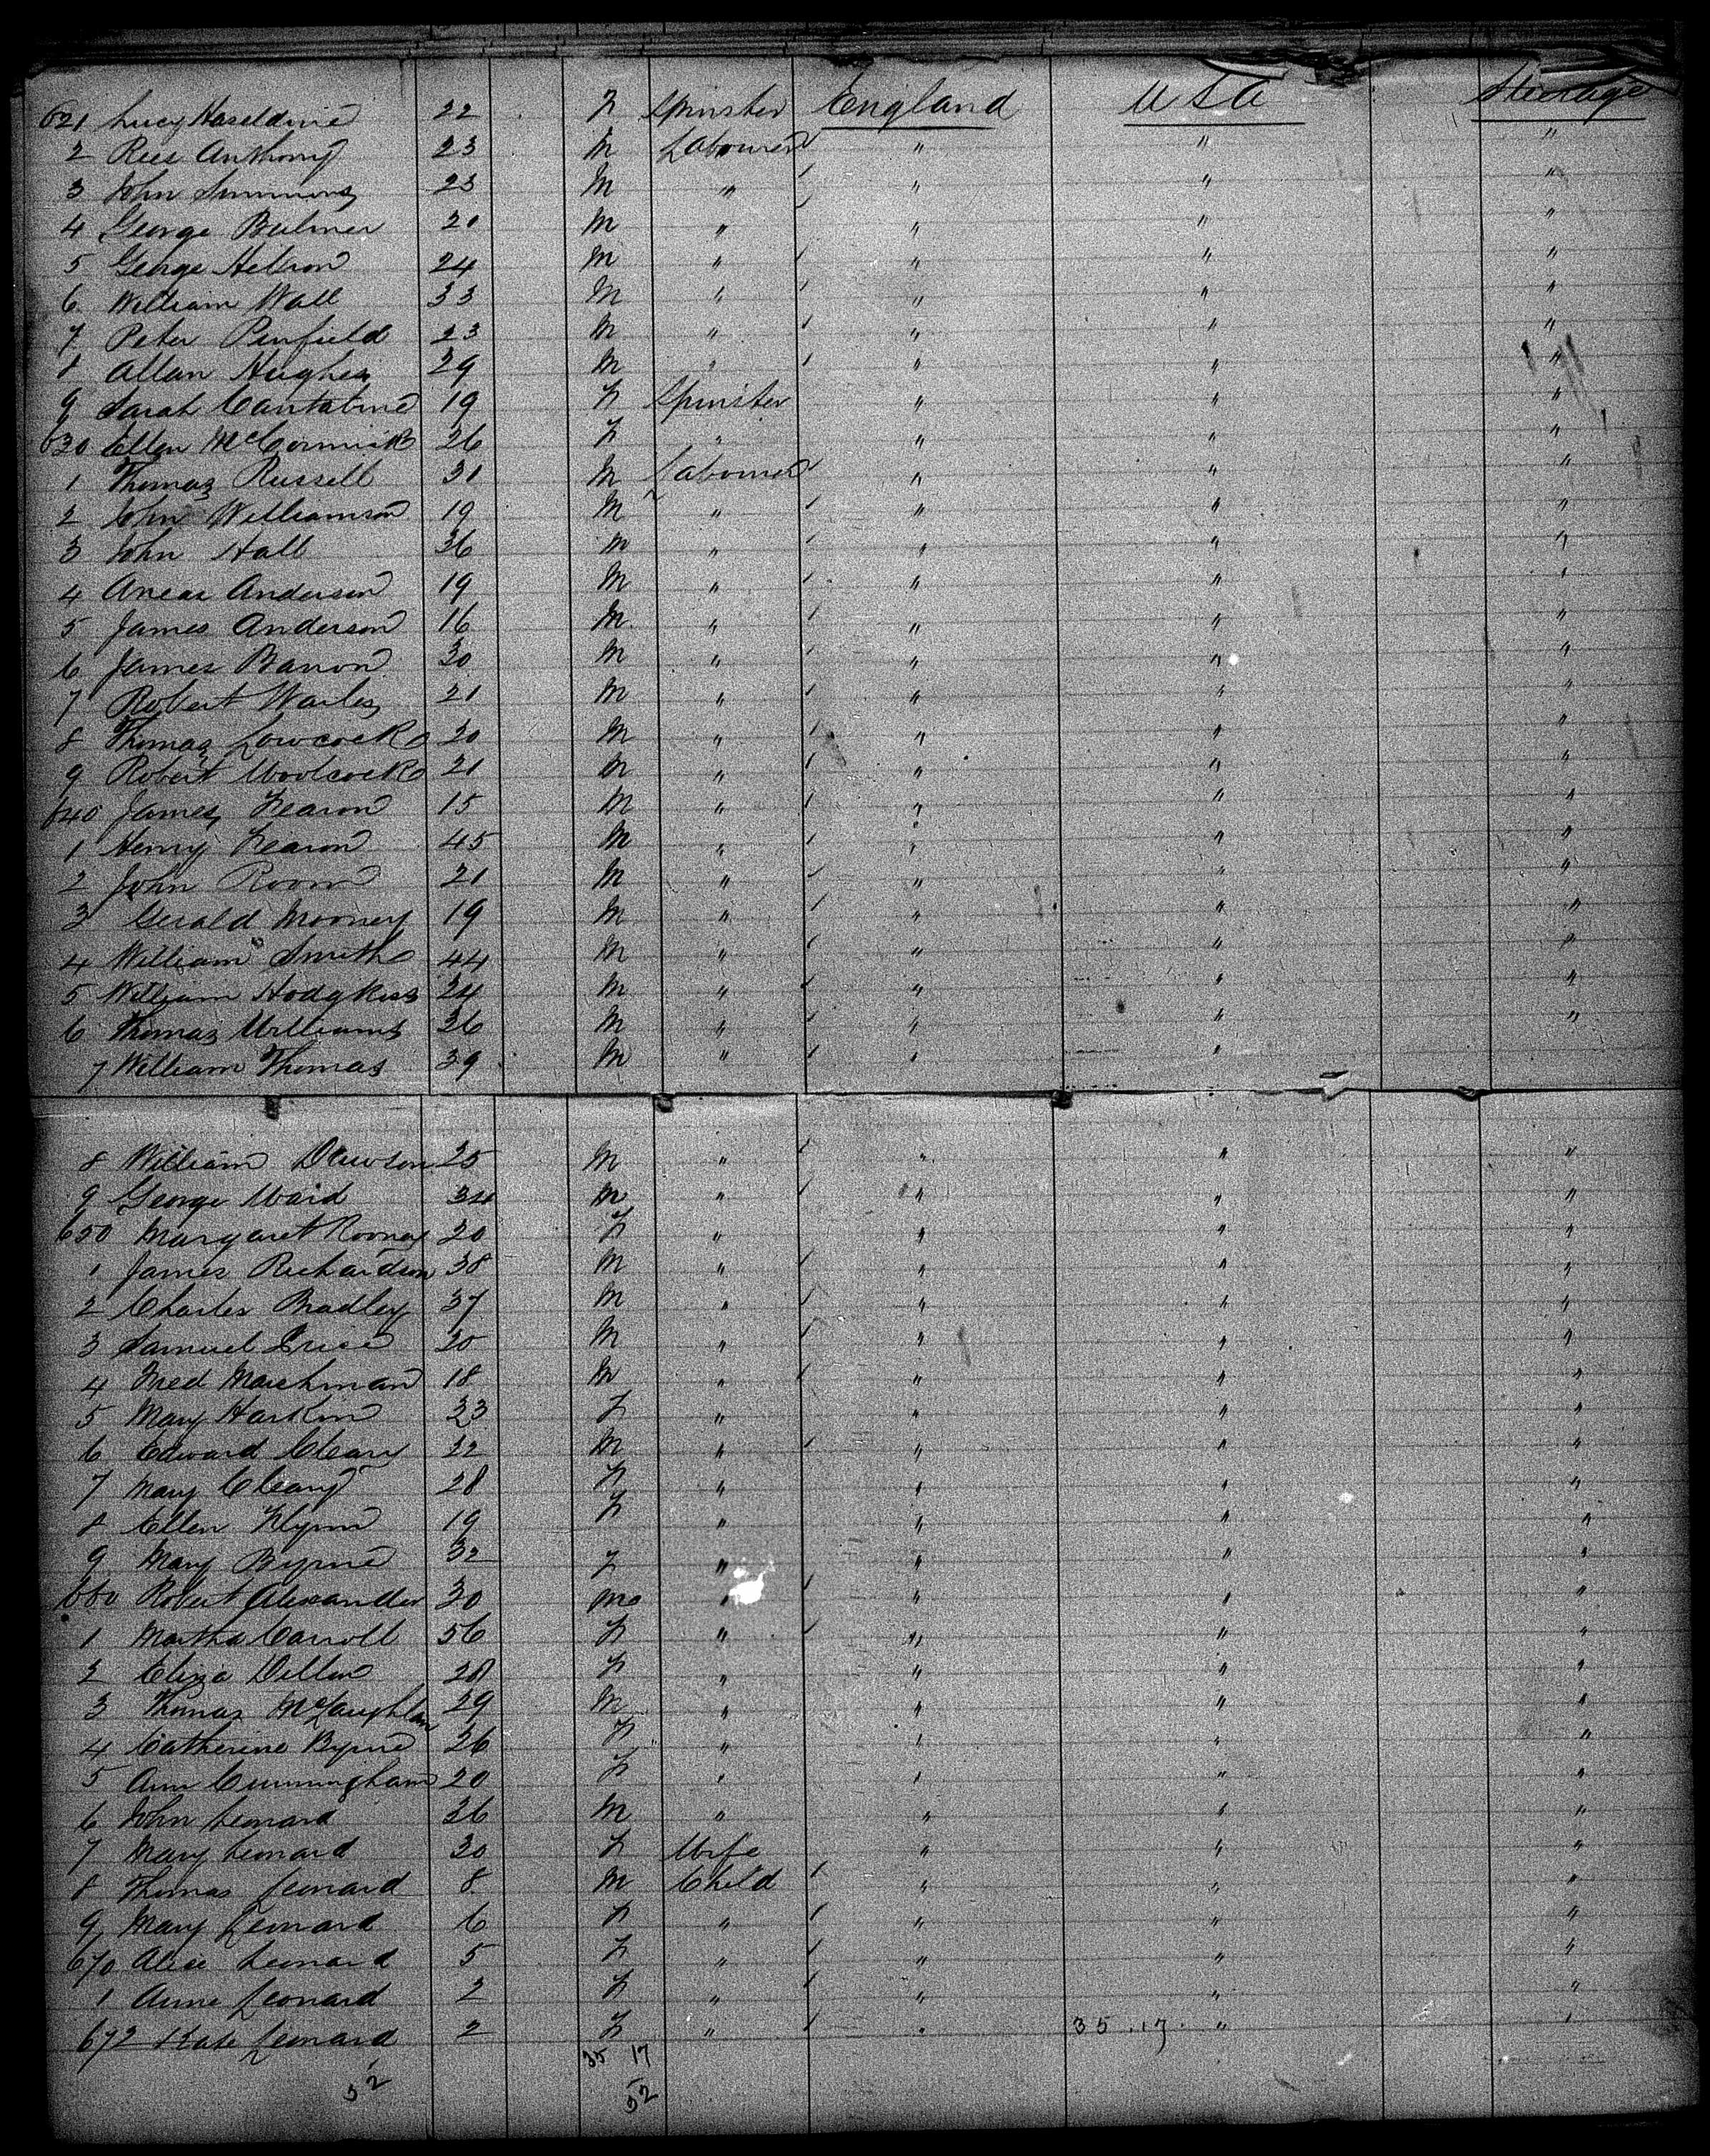 621 Lucy Haseldine 22 F Spinster England USA Steerage
2 Rees Anthony 23 M Labourer " " "
3 John Simmons 23 M " " " "
4 George Bulmer 20 M " " " "
5 George 24 M " " " "
6 William Wall 33 M " " " "
7 Peter Penfield 23 M " " " "
8 Allan Hughes 29 M " " " "
9 Sarah 19 F Spinster " " "
630 Ellen McCormick 26 F " " " "
1 Thomas Russell 31 M Labourer " " "
2 John Williamson 19 M " " " "
3 John Hall 36 M " " " "
4 Aneas Anderson 19 M " " " "
5 James Anderson 16 M " " " "
6 James Barron 30 M " " " "
7 Robert 21 M " " " "
8 Thomas Lowcock 20 M " " " "
9 Robert Woolcock 21 M " " " "
640 James Fearon 15 M " " " "
1 Henry Fearon 45 M " " " "
2 John Room 21 M " " " "
3 Gerald Mooney 19 M " " " "
4 William Smith 44 M " " " "
5 William Hodgkiss 24 M " " " "
6 Thomas Williams 36 M " " " "
7 William Thomas 39 M " " "
8 William Dawson 25 M " " " "
9 George Ward 34 M " " " "
650 Margaret Rooney 20 F " " " "
1 James Richardson 38 M " " " "
2 Charles Bradley 37 M " " " "
3 Samuel Price 20 M " " " "
4 Fred Marchman 18 M " " " "
5 Mary Harkin 23 F " " " "
6 Edward Cleary 22 M " " " "
7 Mary Cleary 28 F " " " "
8 Ellen Flynn 19 F " " " "
9 Mary Byrne 32 F " " " "
660 Robert Alexander 30 M " " " "
1 Martha Carroll 56 F " " " "
2 Eliza Dillon 28 F " " " "
3 Thomas McLaughlan 29 M " " " "
4 Catherine Byrne 26 F " " " "
5 Ann Cunningham 20 F " " " "
6 John Leonard 36 M " " " "
7 Mary Leonard 30 F Wife " " "
8 Thomas Leonard 8 M Child " " "
9 Mary Leonard 6 F " " " "
670 Alice Leonard 5 F " " " "
1 Anne Leonard 2 F " " " "
672 Kate Leonard 2 F " " 35 . 17 . " "
35 17
52 52